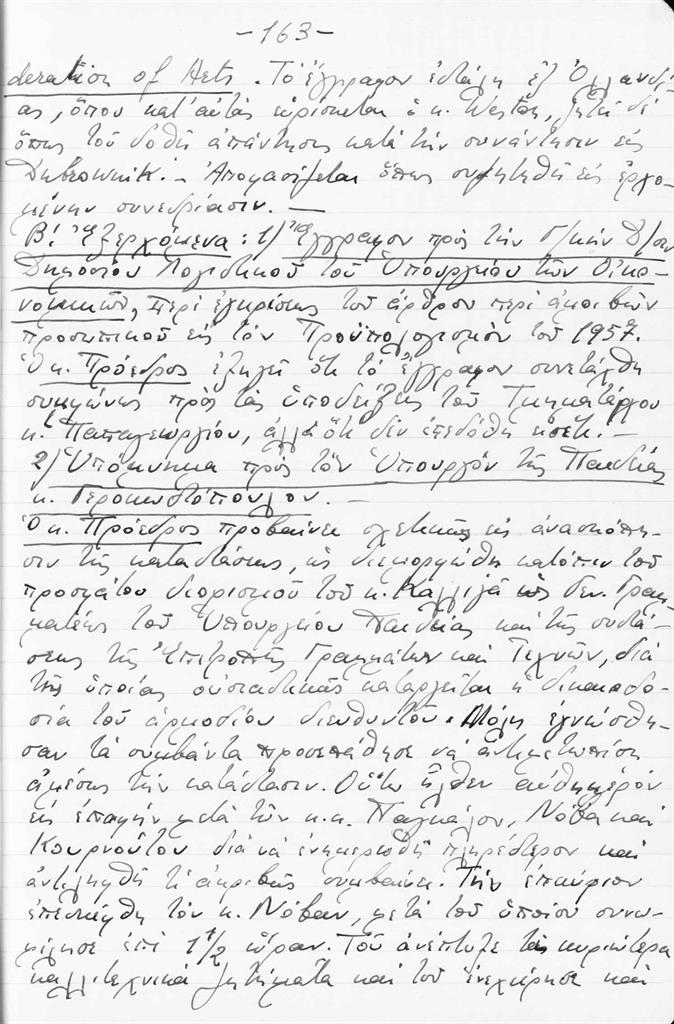 -163-
deration of Arts. Τό ἔγγραφον ἐστάλη ἐξ Ὁλλανδί-
ας, ὅπου κατ' αὐτάς εὑρίσκεται ὁ κ. Weston, ζητεῖ δέ
ὅπως τοῦ δοθῇ ἀπάντησις κατά τήν συνάντησιν εἰς
Dubrownik.- Ἀποφασίζεται ὅπως συζητηθῇ εἰς ἐρχο-
μένην συνεδρίασιν. —
Β! Ἐξερχόμενα: 1) Ἔγγραφον πρός τήν Γ/κήν Δ/σιν
Δημοσίου Λογιστικοῦ τοῦ Ὑπουργείου τῶν Οἰκο-
νομικῶν, περί ἐγκρίσεως τοῦ ἄρθρου περί ἀμοιβῶν
προσωπικοῦ εἰς τόν Προϋπολογισμόν τοῦ 1957.
Ὁ κ. Πρόεδρος ἐξηγεῖ ὅτι τό ἔγγραφον συνετάχθη
συμφώνως πρός τάς ὑποδείξεις τοῦ Τμηματάρχου
κ. Παπαγεωργίου, ἀλλά ὅτι δέν ἐπεδόθη εἰσέτι.-
2) Ὑπόμνημα πρός τόν Ὑπουργόν τῆς Παιδείας
κ. Γεροκωστόπουλον. —
Ὁ κ. Πρόεδρος προβαίνει σχετικῶς εἰς ἀνασκόπη-
σιν τῆς καταστάσεως, ὡς διεμορφώθη κατόπιν τοῦ
προσφάτου διορισμοῦ τοῦ κ. Καλλιγᾶ ὡς Γεν. Γραμ-
ματέως τοῦ Ὑπουργείου Παιδείας καί τῆς συστά-
σεως τῆς Ἐπιτροπῆς Γραμμάτων καί Τεχνῶν, διά
τῆς ὁποίας οὐσιαστικῶς καταργεῖται ἡ δικαιοδο-
σία τοῦ ἁρμοδίου διευθυντοῦ. Μόλις ἐγνώσθη-
σαν τά συμβάντα προσεπάθησε νά ἀντιμετωπίσῃ
ἀμέσως τήν κατάστασιν. Οὕτω ἦλθεν αὐθημερόν
εἰς ἐπαφήν μετά τῶν κ.κ. Παγκάλου, Νόβα καί
Κουρνούτου διά νά ἐνημερωθῇ πληρέστερον καί
ἀντιληφθῇ τί ἀκριβῶς συμβαίνει. Τήν ἐπαύριον
ἐπεσκέφθη τόν κ. Νόβαν, μετά τοῦ ὁποίου συνω-
μίλησε ἐπί 1 1/2 ὥραν. Τοῦ ἀνέπτυξε τά κυριώτερα
καλλιτεχνικά ζητήματα καί τοῦ ἐνεχείρησε καί